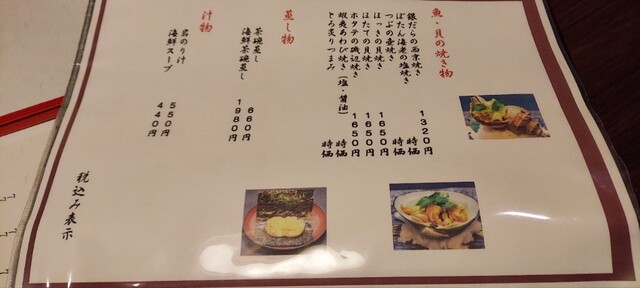 魚・貝の焼き物
銀だらの西京焼き 1320円
ぼたん海老の塩焼き 時価
つぶの壺焼き 時価
ほっきの貝焼き 1650円
ほたての貝焼き 1650円
ホタテの磯辺焼き 1650円
蝦夷あわび焼き（塩・醤油） 時価
とろ炙りつまみ 時価
蒸し物
茶碗蒸し 660円
海鮮茶碗蒸し 1980円
汁物
岩のり汁 550円
海鮮スープ 440円
税込み表示